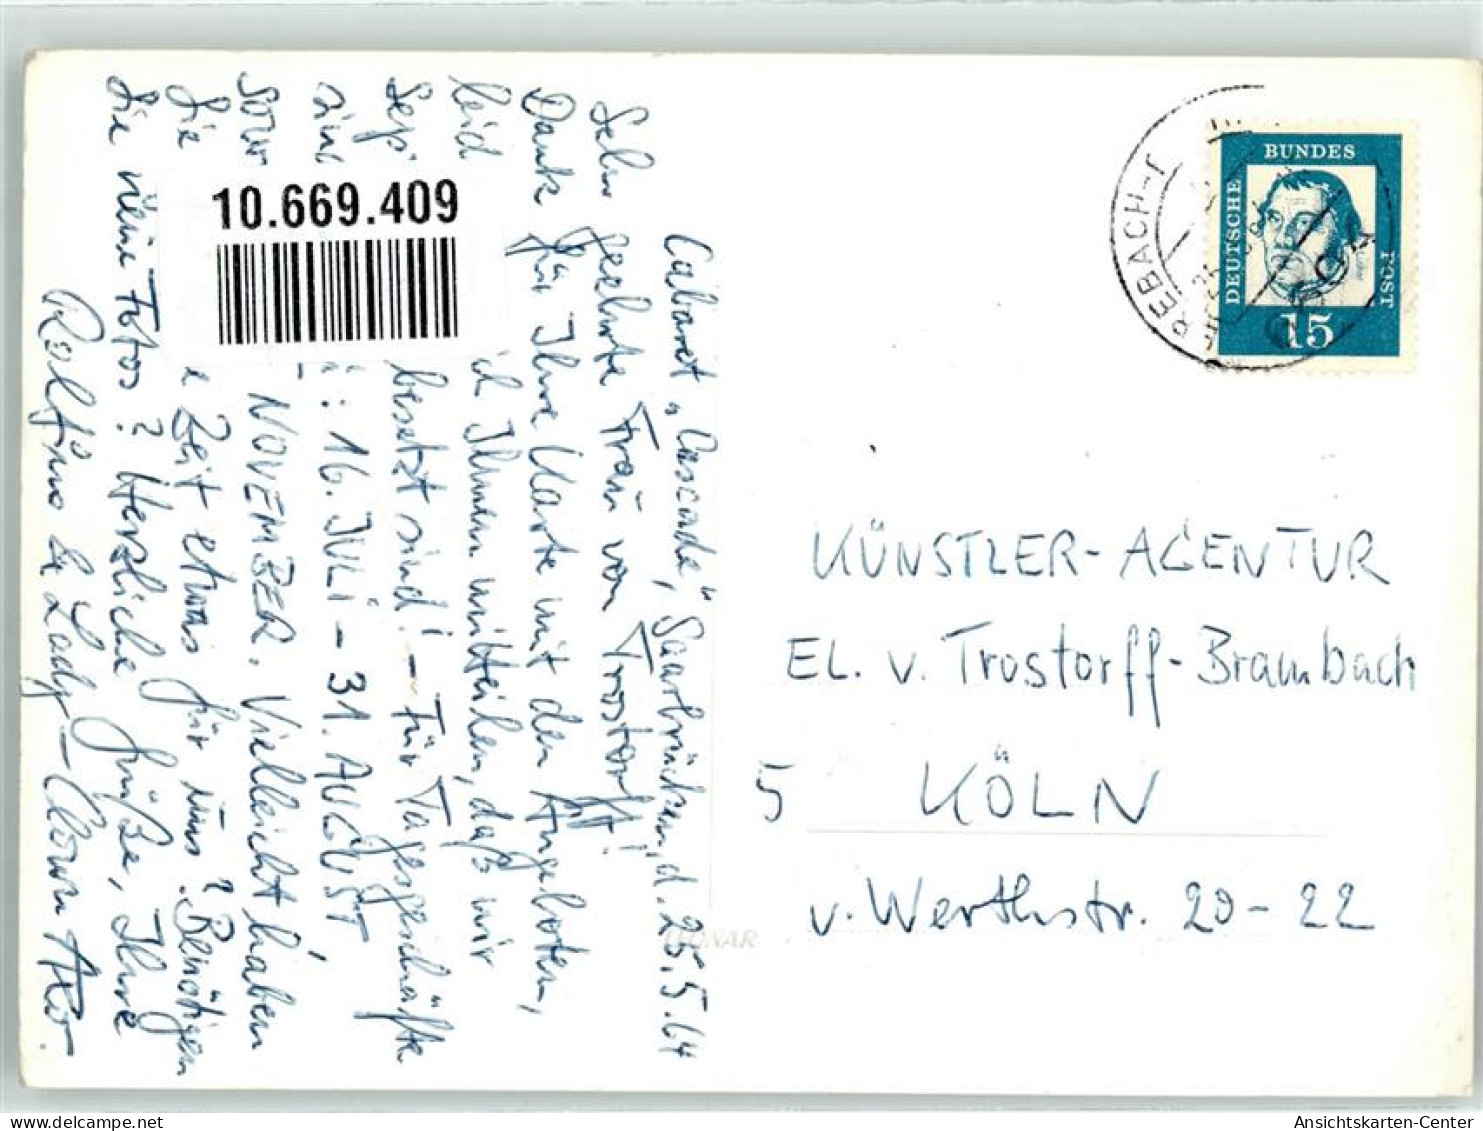 Cabaret „Cascade", Saarbrücken, d. 25.5.64
Sehr geehrte Frau von Trostorff!
Dank für Ihre Karte mit den Angeboten,
leid Ihnen mitteilen, daß wir
Sep besetzt sind! – Für Tagesgeschäfte
sind : 16. JULI – 31. AUGUST
sow NOVEMBER. Vielleicht haben
Sie Zeit etwas für uns? Benötigen
Sie neue Fotos? Herzliche Grüße, Ihre
Rolfino & Lady – Clown Akt.
10.669.409
EREBACH-T
DEUTSCHE
BUNDES
POST
15
KÜNSTLER-AGENTUR
EL. v. Trostorff-Brambach
5 KÖLN
v. Werthstr. 20-22
LEONAR
Ansichtskarten-Center